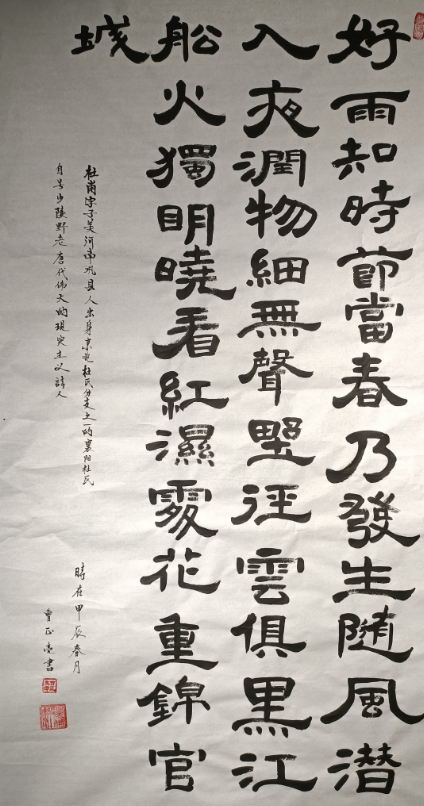 好雨知時節當春乃發生隨風潜
入夜潤物細無聲野徑雲俱黑江
船火獨明曉看紅濕處花重錦官
城
杜甫字子美河南巩县人出身京兆杜氏分支之一的襄阳杜氏
自号少陵野老唐代伟大的现实主义詩人
時在甲辰春月
曾正書